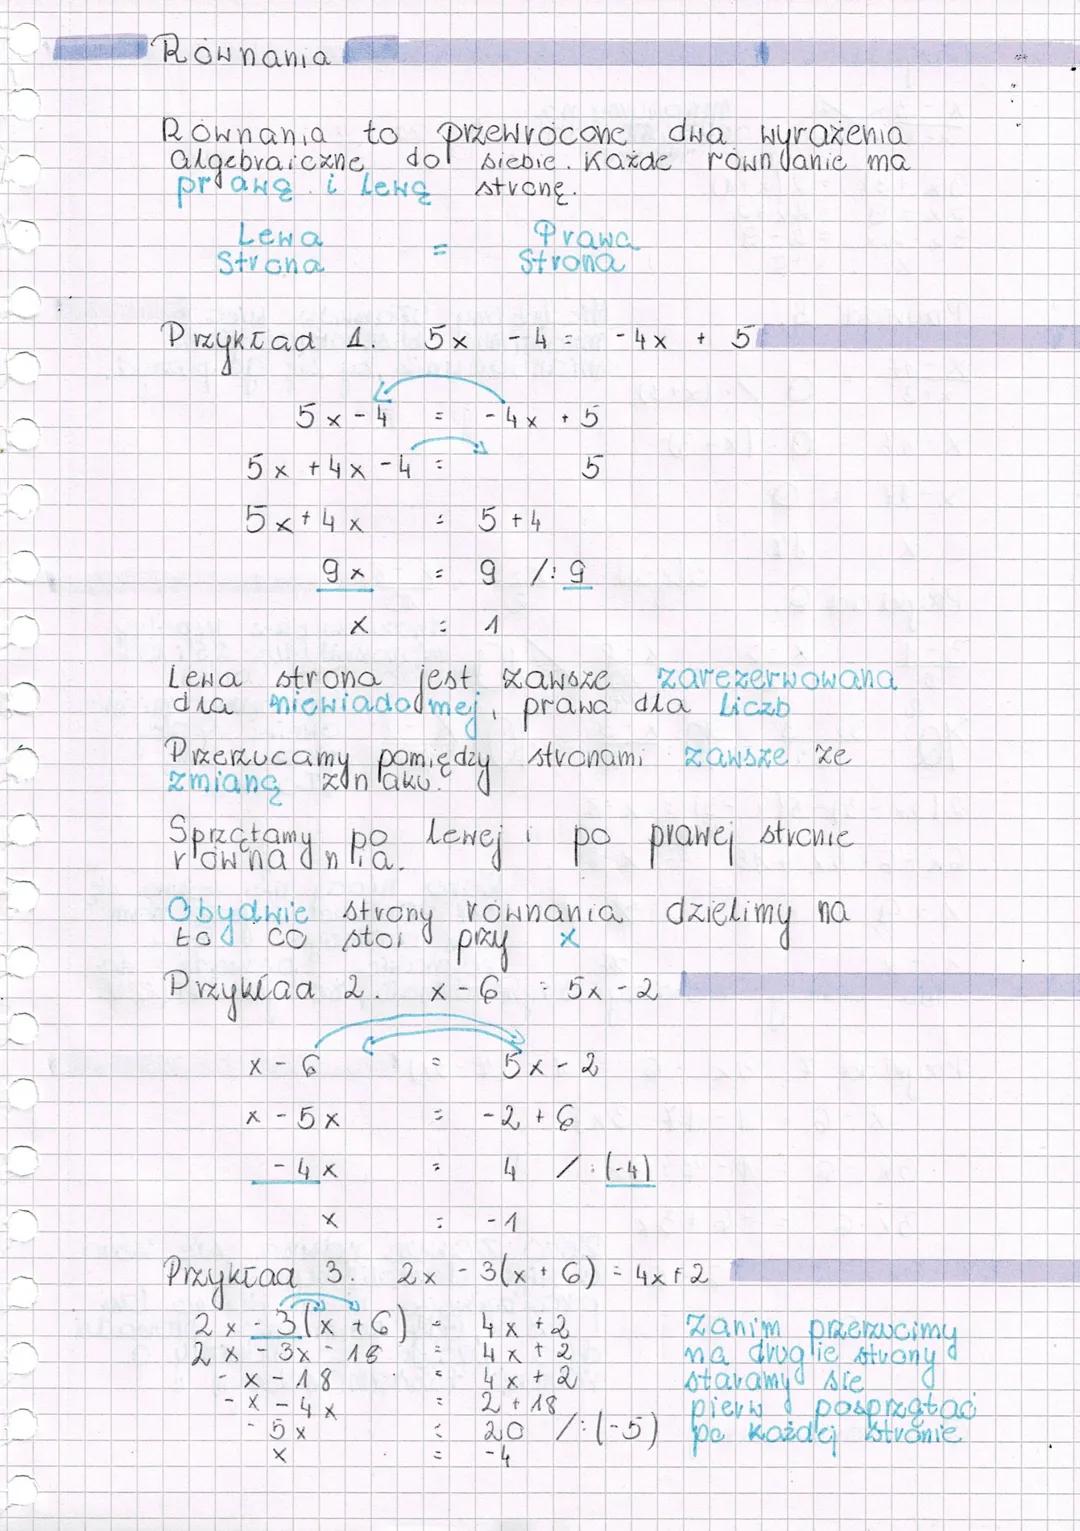 Równania
Równania to przewrócone dwa wyrażenia
algebraiczne do siebie. Każde równanie ma
prawą i lewą stronę.
Lewa = Prawa
Strona Strona
Przykład 1. 5x - 4 = -4x + 5
5x - 4 = -4x + 5
5x + 4x - 4 = 5
5x + 4x = 5 + 4
9x = 9 /: 9
x = 1
Lewa strona jest zawsze zarezerwowana
dla niewiadomej, prawa dla liczb
Przerzucamy pomiędzy stronami zawsze ze
zmianą znaku.
Sprzątamy po lewej i po prawej stronie
równania.
Obydwie strony równania dzielimy na
to co stoi przy x
Przykład 2. x - 6 = 5x - 2
x - 6 = 5x - 2
x - 5x = -2 + 6
-4x = 4 /: (-4)
x = -1
Przykład 3. 2x - 3(x + 6) = 4x + 2
2x - 3(x + 6) = 4x + 2
2x - 3x - 18 = 4x + 2
-x - 18 = 4x + 2
-x - 4x = 2 + 18
-5x = 20 /: (-5)
x = -4
Zanim przerzucimy
na drugie strony
staramy sie
pierw posprzątać
po każdej stronie